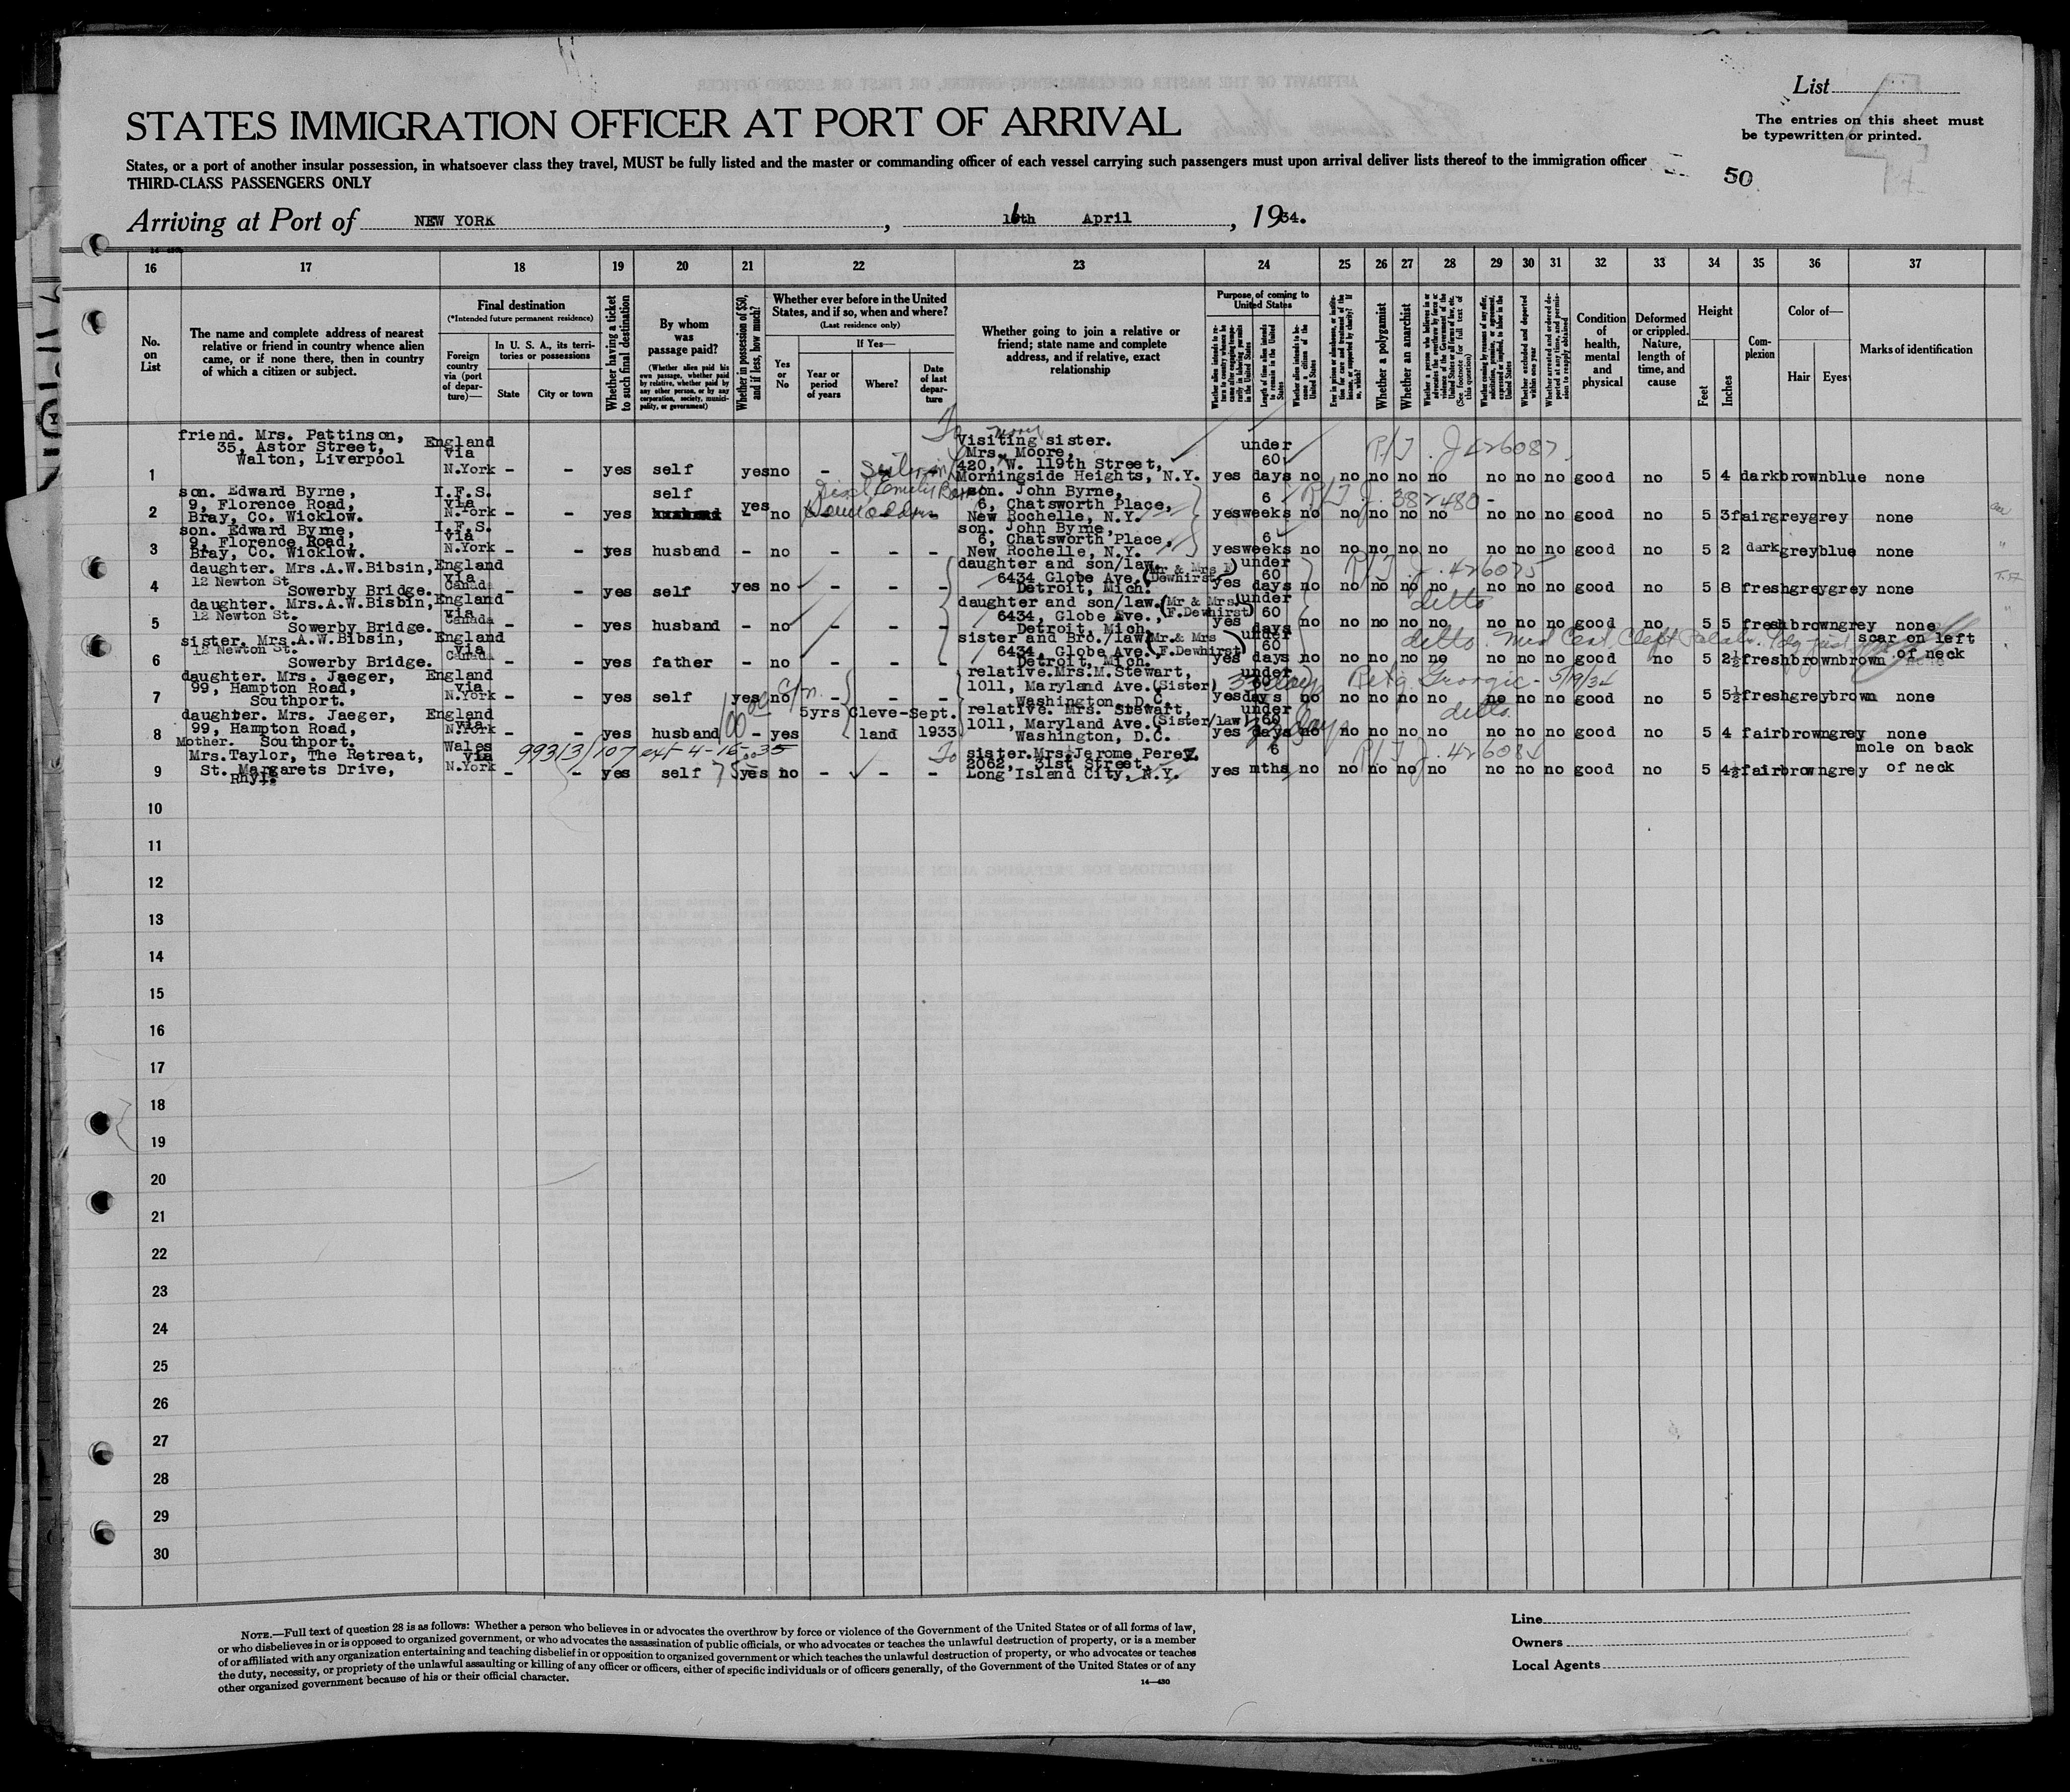 List
The entries on this sheet must
be typewritten or printed.
STATES IMMIGRATION OFFICER AT PORT OF ARRIVAL
States, or a port of another insular possession, in whatsoever class they travel, MUST be fully listed and the master or commanding officer of each vessel carrying such passengers must upon arrival deliver lists thereof to the immigration officer
THIRD-CLASS PASSENGERS ONLY
50
Arriving at Port of NEW YORK, 16th April, 1934.
16 17 18 19 20 21 22 23 24 25 26 27 28 29 30 31 32 33 34 35 36 37
No. on List
The name and complete address of nearest relative or friend in country whence alien came, or if none there, then in country of which a citizen or subject.
Final destination
(*Intended future permanent residence)
Foreign country via (port of departure)—
In U. S. A., its territories or possessions
State
City or town
Whether having a ticket to such final destination
By whom was passage paid?
(Whether alien paid his own passage, whether paid by relative, whether paid by any other person, or by any corporation, society, municipality, or government)
Whether in possession of $50, and if less, how much?
Whether ever before in the United States, and if so, when and where?
(Last residence only)
Yes or No
If Yes—
Year or period of years
Where?
Date of last departure
Whether going to join a relative or friend; state name and complete address, and if relative, exact relationship
Purpose of coming to United States
Length of time alien intends to remain in the United States
Whether alien intends to become a citizen of the United States
Whether a polygamist
Whether an anarchist
(See footnote for full text of this question)
Whether excluded and deported within one year
Condition of health, mental and physical
Deformed or crippled. Nature, length of time, and cause
Height
Feet
Inches
Complexion
Color of—
Hair
Eyes
Marks of identification
friend. Mrs. Pattinson,
35, Astor Street,
Walton, Liverpool
England via N.York - - yes self yes no - -
visiting sister.
Mrs. Moore,
420, W. 119th Street,
Morningside Heights, N.Y.
yes under 60 days no no no no no no no no good no 5 4 dark brown blue none
P/T. J 426087.
1
son. Edward Byrne,
9, Florence Road,
Bray, Co. Wicklow.
I.F.S. via N.York - - yes self yes - no
son. John Byrne,
6, Chatsworth Place,
New Rochelle, N.Y.
yes 6 weeks no no no no no no no no good no 5 3 fair grey grey none
P/T J. 382480 -
2
son. Edward Byrne,
9, Florence Road,
Bray, Co. Wicklow.
I.F.S. via N.York - - yes husband - no - - -
son. John Byrne,
6, Chatsworth Place,
New Rochelle, N.Y.
yes 6 weeks no no no no no no no no good no 5 2 dark grey blue none
3
daughter. Mrs.A.W.Bibsin,
12 Newton St
Sowerby Bridge.
England via Canada - - yes self yes no - - -
daughter and son/law.
6434 Globe Ave. (Mr & Mrs F Dewhirst)
Detroit, Mich.
yes under 60 days no no no no no no no no good no 5 8 fresh grey grey none
P/T J. 426075
4
daughter. Mrs.A.W.Bisbin,
12 Newton St.
Sowerby Bridge.
England via Canada - - yes husband - no - - -
daughter and son/law. (Mr & Mrs
6434, Globe Ave., F.Dewhirst)
Detroit, Mich.
yes under 60 days no no no no no no no no good no 5 5 fresh brown grey none
ditto
5
sister. Mrs.A.W.Bibsin,
12 Newton St.
Sowerby Bridge.
England via Canada - - yes father - no - - -
sister and Bro./law (Mr. & Mrs
6434, Globe Ave., F.Dewhirst)
Detroit, Mich.
yes under 60 days no no no no no no no no good no 5 2½ fresh brown brown
scar on left of neck
ditto. Med Cert. Cleft Palate.
6
daughter. Mrs. Jaeger,
99, Hampton Road,
Southport.
England via N.York - - yes self yes no - - -
relative.Mrs.M.Stewart,
1011, Maryland Ave. (Sister)
Washington, D.C.
yes under 60 days no no no no no no no no good no 5 5½ fresh grey brown none
33 days Retg Georgic - 5/19/34
7
daughter. Mrs. Jaeger,
99, Hampton Road,
Southport.
England via N.York yes husband - yes 5yrs Cleve-land Sept. 1933
relative. Mrs. Stewart,
1011, Maryland Ave. (Sister/law)
Washington, D.C.
yes under 60 days no no no no no no no no good no 5 4 fair brown grey none
ditto.
8
Mother.
Mrs.Taylor, The Retreat,
St. Margarets Drive,
Rhyl.
Wales via N.York - - yes self yes no - - -
99313/107 ext 4-16-35
sister.Mrs.Jerome Perez.
2062, 31st Street,
Long Island City, N.Y.
yes 6 mths no no no no no no no no good no 5 4½ fair brown grey
mole on back of neck
P/T J. 426084
9
10
11
12
13
14
15
16
17
18
19
20
21
22
23
24
25
26
27
28
29
30
NOTE.—Full text of question 28 is as follows: Whether a person who believes in or advocates the overthrow by force or violence of the Government of the United States or of all forms of law,
or who disbelieves in or is opposed to organized government, or who advocates the assassination of public officials, or who advocates or teaches the unlawful destruction of property, or is a member
of or affiliated with any organization entertaining and teaching disbelief in or opposition to organized government or which teaches the unlawful destruction of property, or who advocates or teaches
the duty, necessity, or propriety of the unlawful assaulting or killing of any officer or officers, either of specific individuals or of officers generally, of the Government of the United States or of any
other organized government because of his or their official character.
14—430
Line
Owners
Local Agents